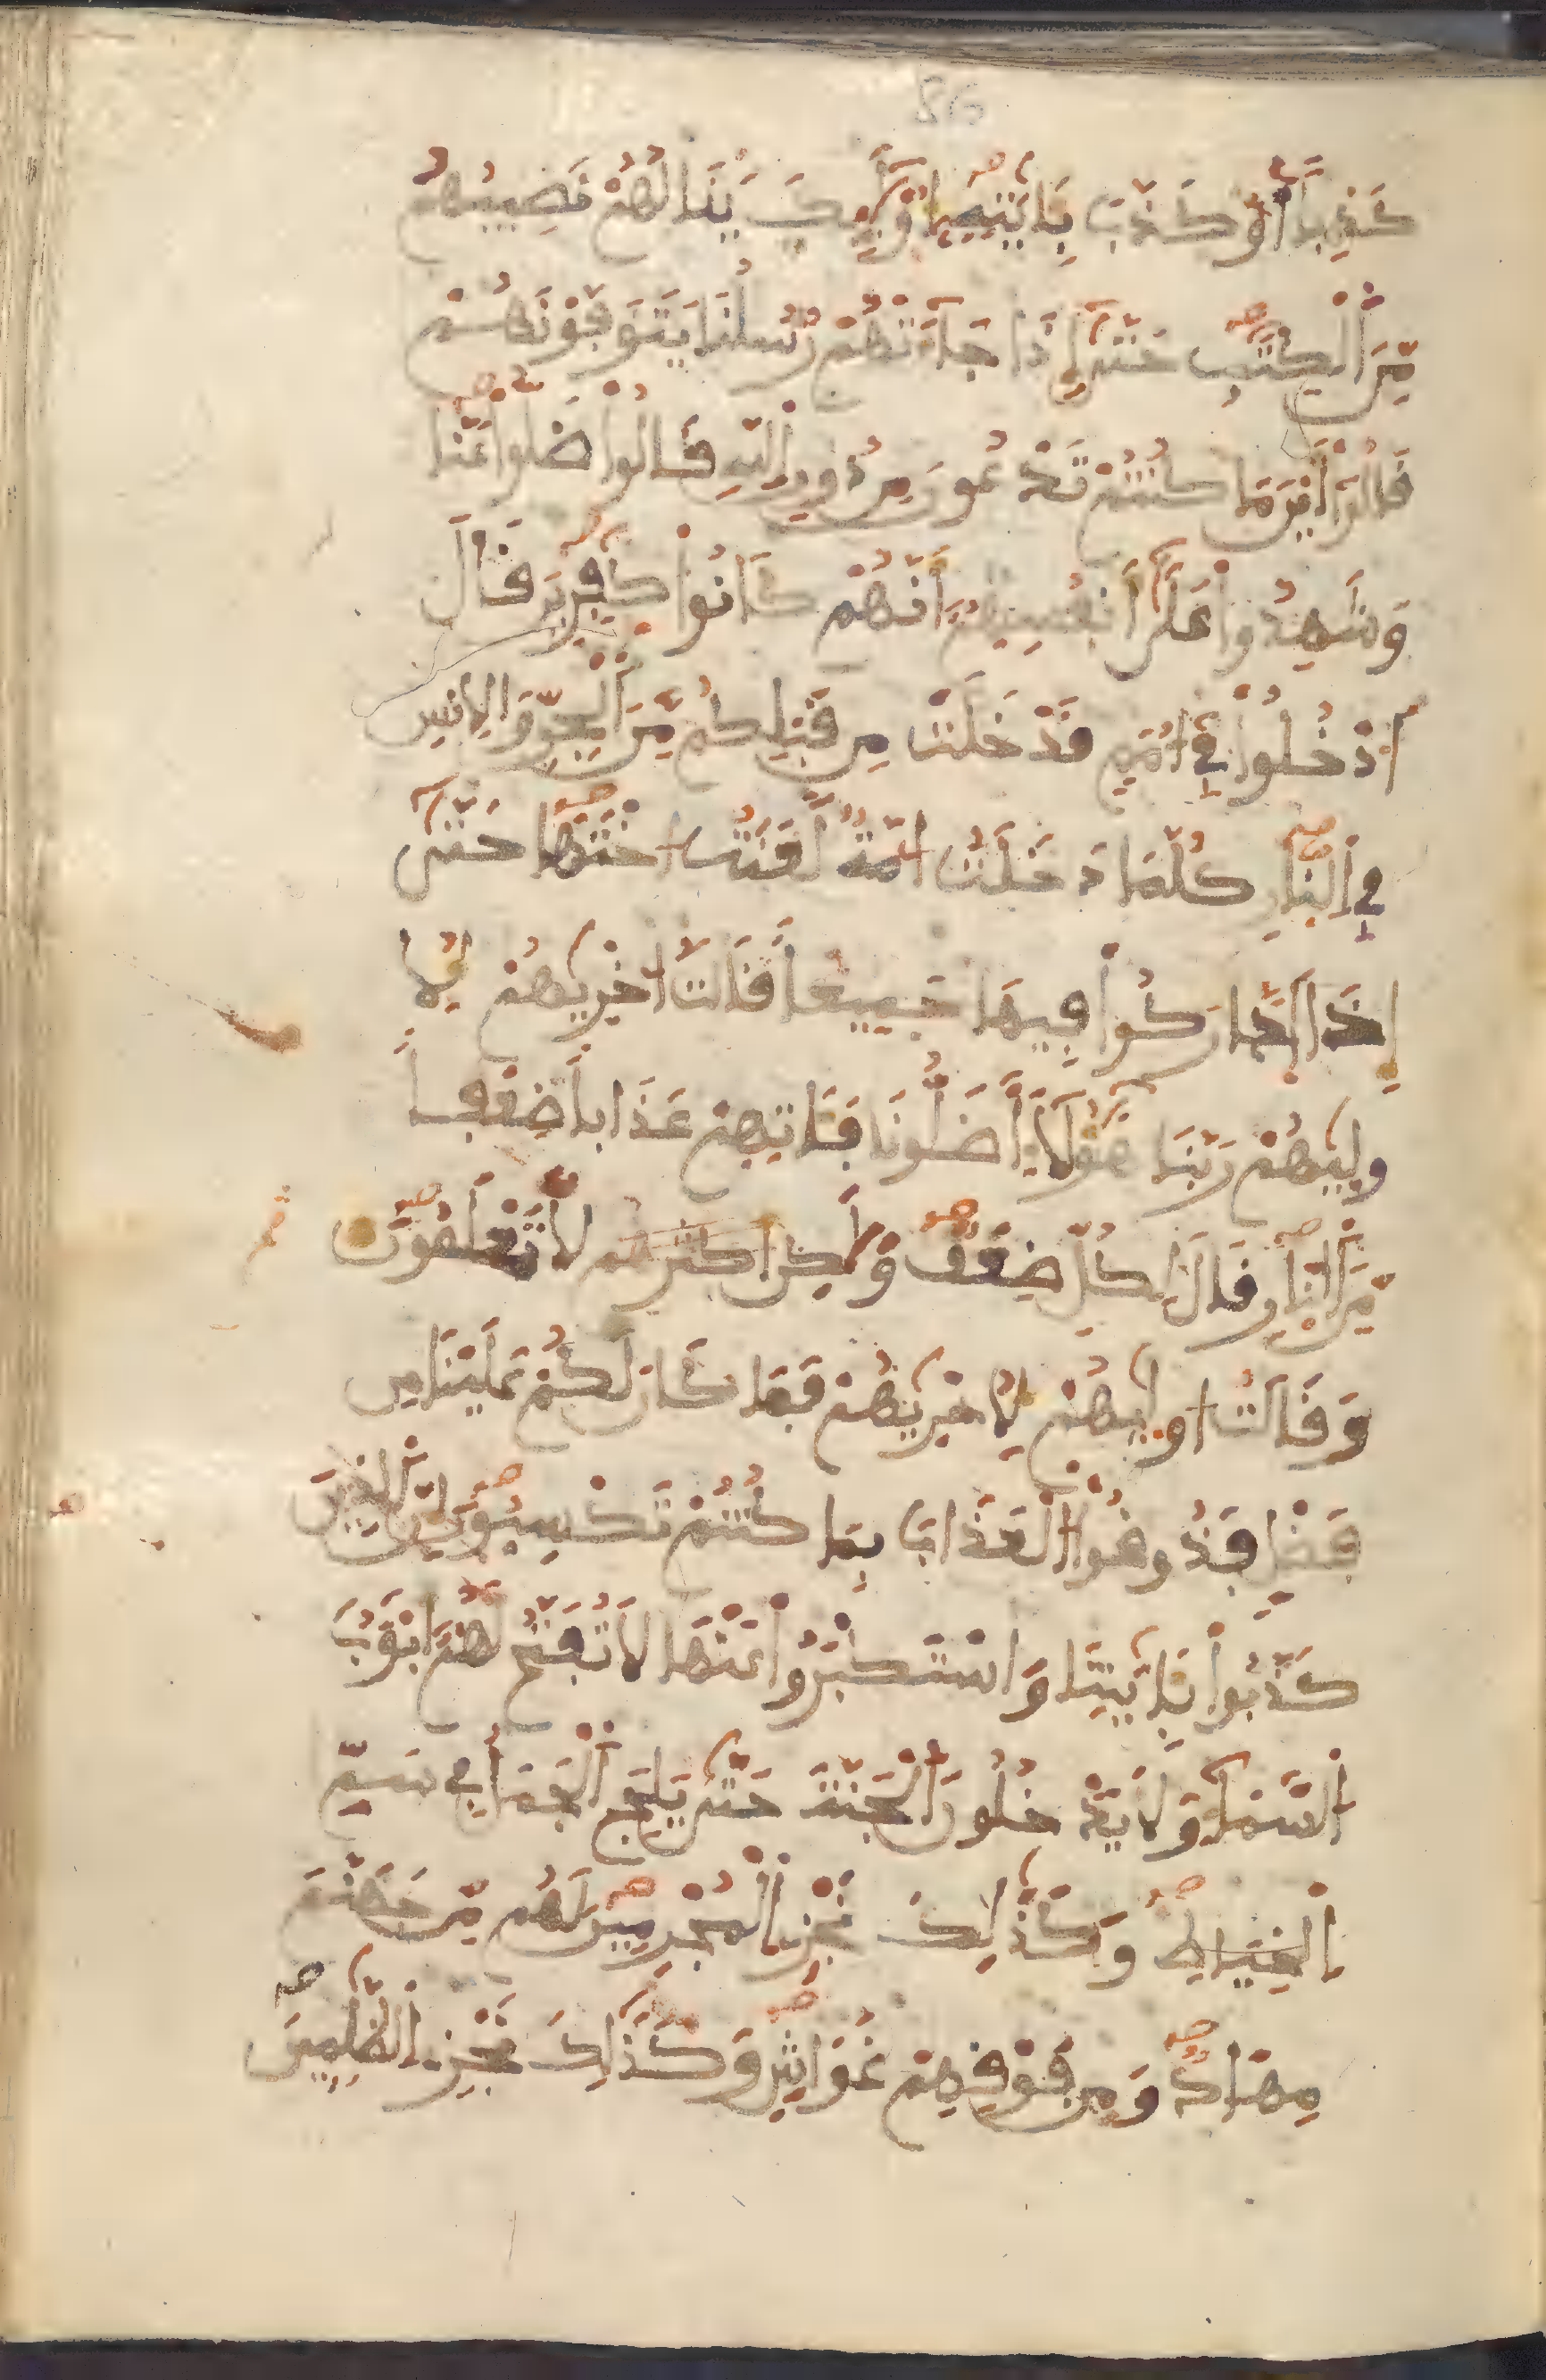 86
كَذِباً أَوْ كَذَّبَ بِـَٔايَٰتِهِۦٓ أُوْلَٰٓئِكَ يَنَالُهُمْ نَصِيبُهُم
مِّنَ ٱلْكِتَٰبِ حَتَّىٰٓ إِذَا جَآءَتْهُمْ رُسُلُنَا يَتَوَفَّوْنَهُمْ
قَالُوٓاْ أَيْنَ مَا كُنتُمْ تَدْعُونَ مِن دُونِ ٱللَّهِ قَالُواْ ضَلُّواْ عَنَّا
وَشَهِدُواْ عَلَىٰٓ أَنفُسِهِمُۥٓ أَنَّهُمْ كَانُواْ كَٰفِرِينَ قَالَ
ٱدْخُلُواْ فِےٓ أُمَمٍ قَدْ خَلَتْ مِن قَبْلِكُم مِّنَ ٱلْجِنِّ وَٱلِانسِ
فِے ٱلنَّارِ كُلَّمَا دَخَلَتُ ا۟مَّةٌ لَّعَنَتُ ا۟خْتَهَا حَتَّىٰٓ
إِذَا ٱدَّارَكُواْ فِيهَا جَمِيعاً قَالَتُ ا۟خْرَيٰهُمْ لِأُ
ولَيٰهُمْ رَبَّنَا هَٰٓؤُلَآءِ اَ۬ضَلُّونَا فَـَٔاتِهِمْ عَذَاباً ضِعْفاً
مِّنَ ٱلنَّارِ قَالَ لِكُلٍّ ضِعْفٌ وَلَٰكِن أكثرهم لَّا تَعْلَمُونَ
وَقَالَتُ ا۟ولَيٰهُمْ لِأُخْرَيٰهُمْ فَمَا كَانَ لَكُمْ عَلَيْنَا مِن
فَضْلٍ فَذُوقُواْ ٱلْعَذَابَ بِمَا كُنتُمْ تَكْسِبُونَ إِنَّ ٱلذِينَ
كَذَّبُواْ بِـَٔايَٰتِنَا وَٱسْتَكْبَرُواْ عَنْهَا لَا تُفَتَّحُ لَهُمُۥٓ أَبْوَٰبُ
ٱلسَّمَآءِ وَلَا يَدْخُلُونَ ٱلْجَنَّةَ حَتَّىٰ يَلِجَ ٱلْجَمَلُ فِے سَمِّ
ٱلْخِيَاطِ وَكَذَٰلِكَ نَجْزِے ٱلْمُجْرِمِينَ لَهُم مِّن جَهَنَّمَ
مِهَادٌ وَمِن فَوْقِهِمْ غَوَاشٍ وَكَذَٰلِكَ نَجْزِے ٱلظَّٰلِمِينَ